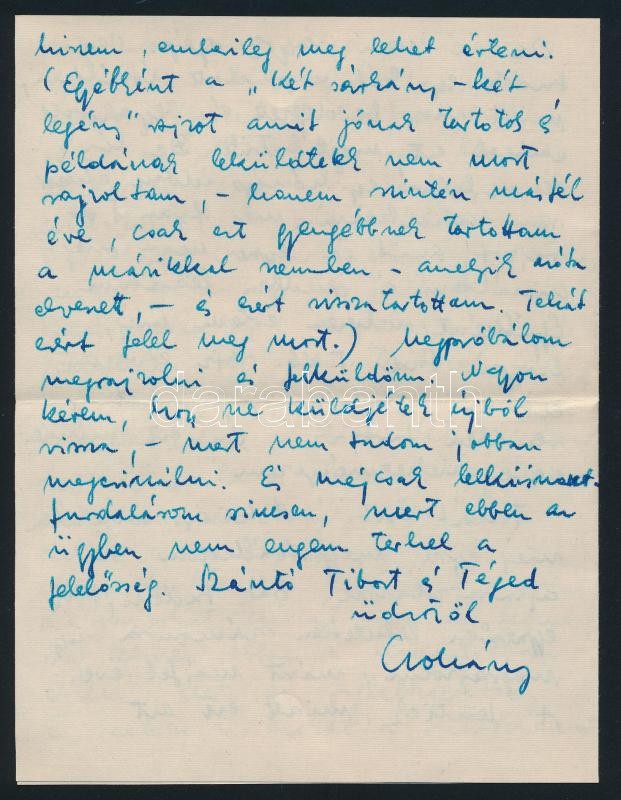 hiszem, emberileg meg lehet érteni.
(Egyébként a „Két sárkány – két
legény" rajzot amit jónak tartotok és
példának leküldtetek nem most
rajzoltam, – hanem szintén másfél
éve, csak ezt gyengébbnek tartottam
a másikkal szemben – amelyik azóta
elveszett, – és ezért visszatartottam. Tehát
ezért felel meg most.) Megpróbálom
megrajzolni és felküldöm. Nagyon
kérem, hogy ne küldjétek újból
vissza, – mert nem tudom jobban
megcsinálni. És mégcsak lelkiismeret-
furdalásom sincsen, mert ebben az
ügyben nem engem terhel a
felelősség. Szántó Tibort és Téged
üdvözöl
darabanth